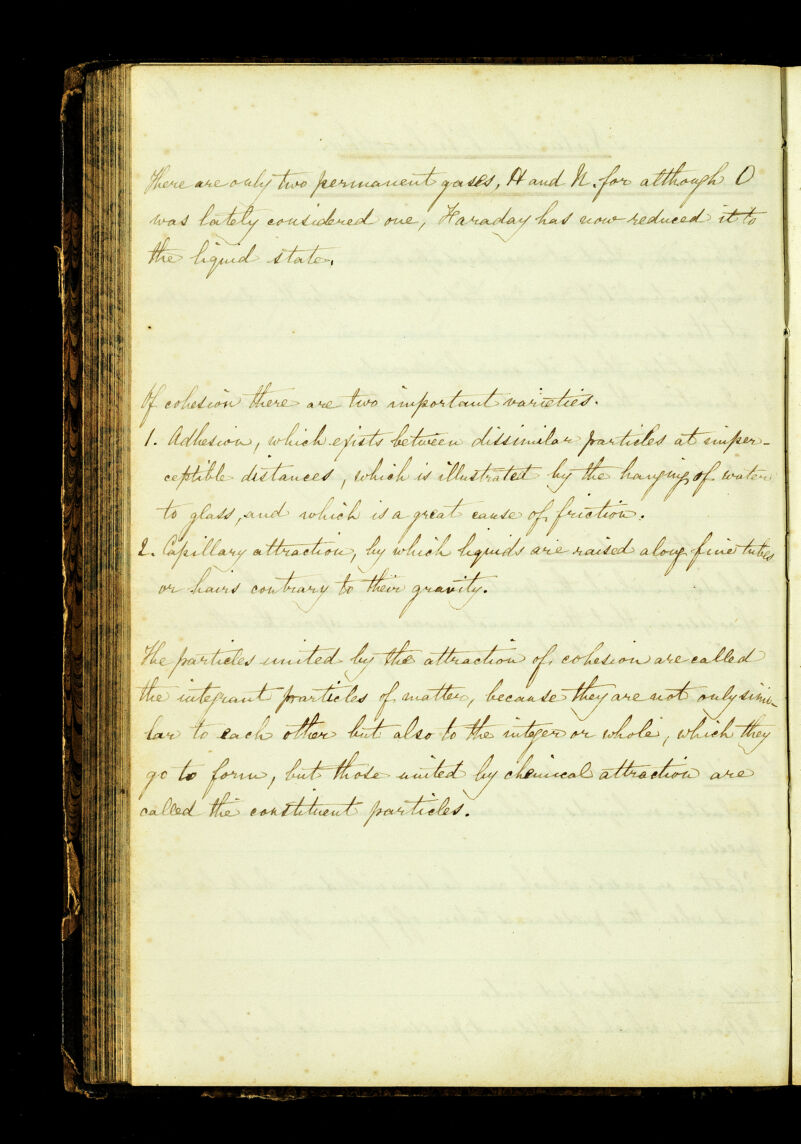 There are only two permanent gases, H and N. for although O
was lately considered one, Faraday has now reduced it to
the liquid state.
Of cohesion there are two important varieties.
1. Adhesion, which exists between dissimilar particles at imper-
ceptible distances, which is illustrated by the hanging of water
to glass, and which is a great cause of friction.
2. Capillary attraction, by which liquids are raised along fine tubes
or hairs contrary to their gravity.
The particles united by the attraction of cohesion are called
the integrant particles of matter, because they are not only simi-
lar to each other but also to the integer or whole, which they
go to form, but those united by chemical attraction are
called the constituent particles.